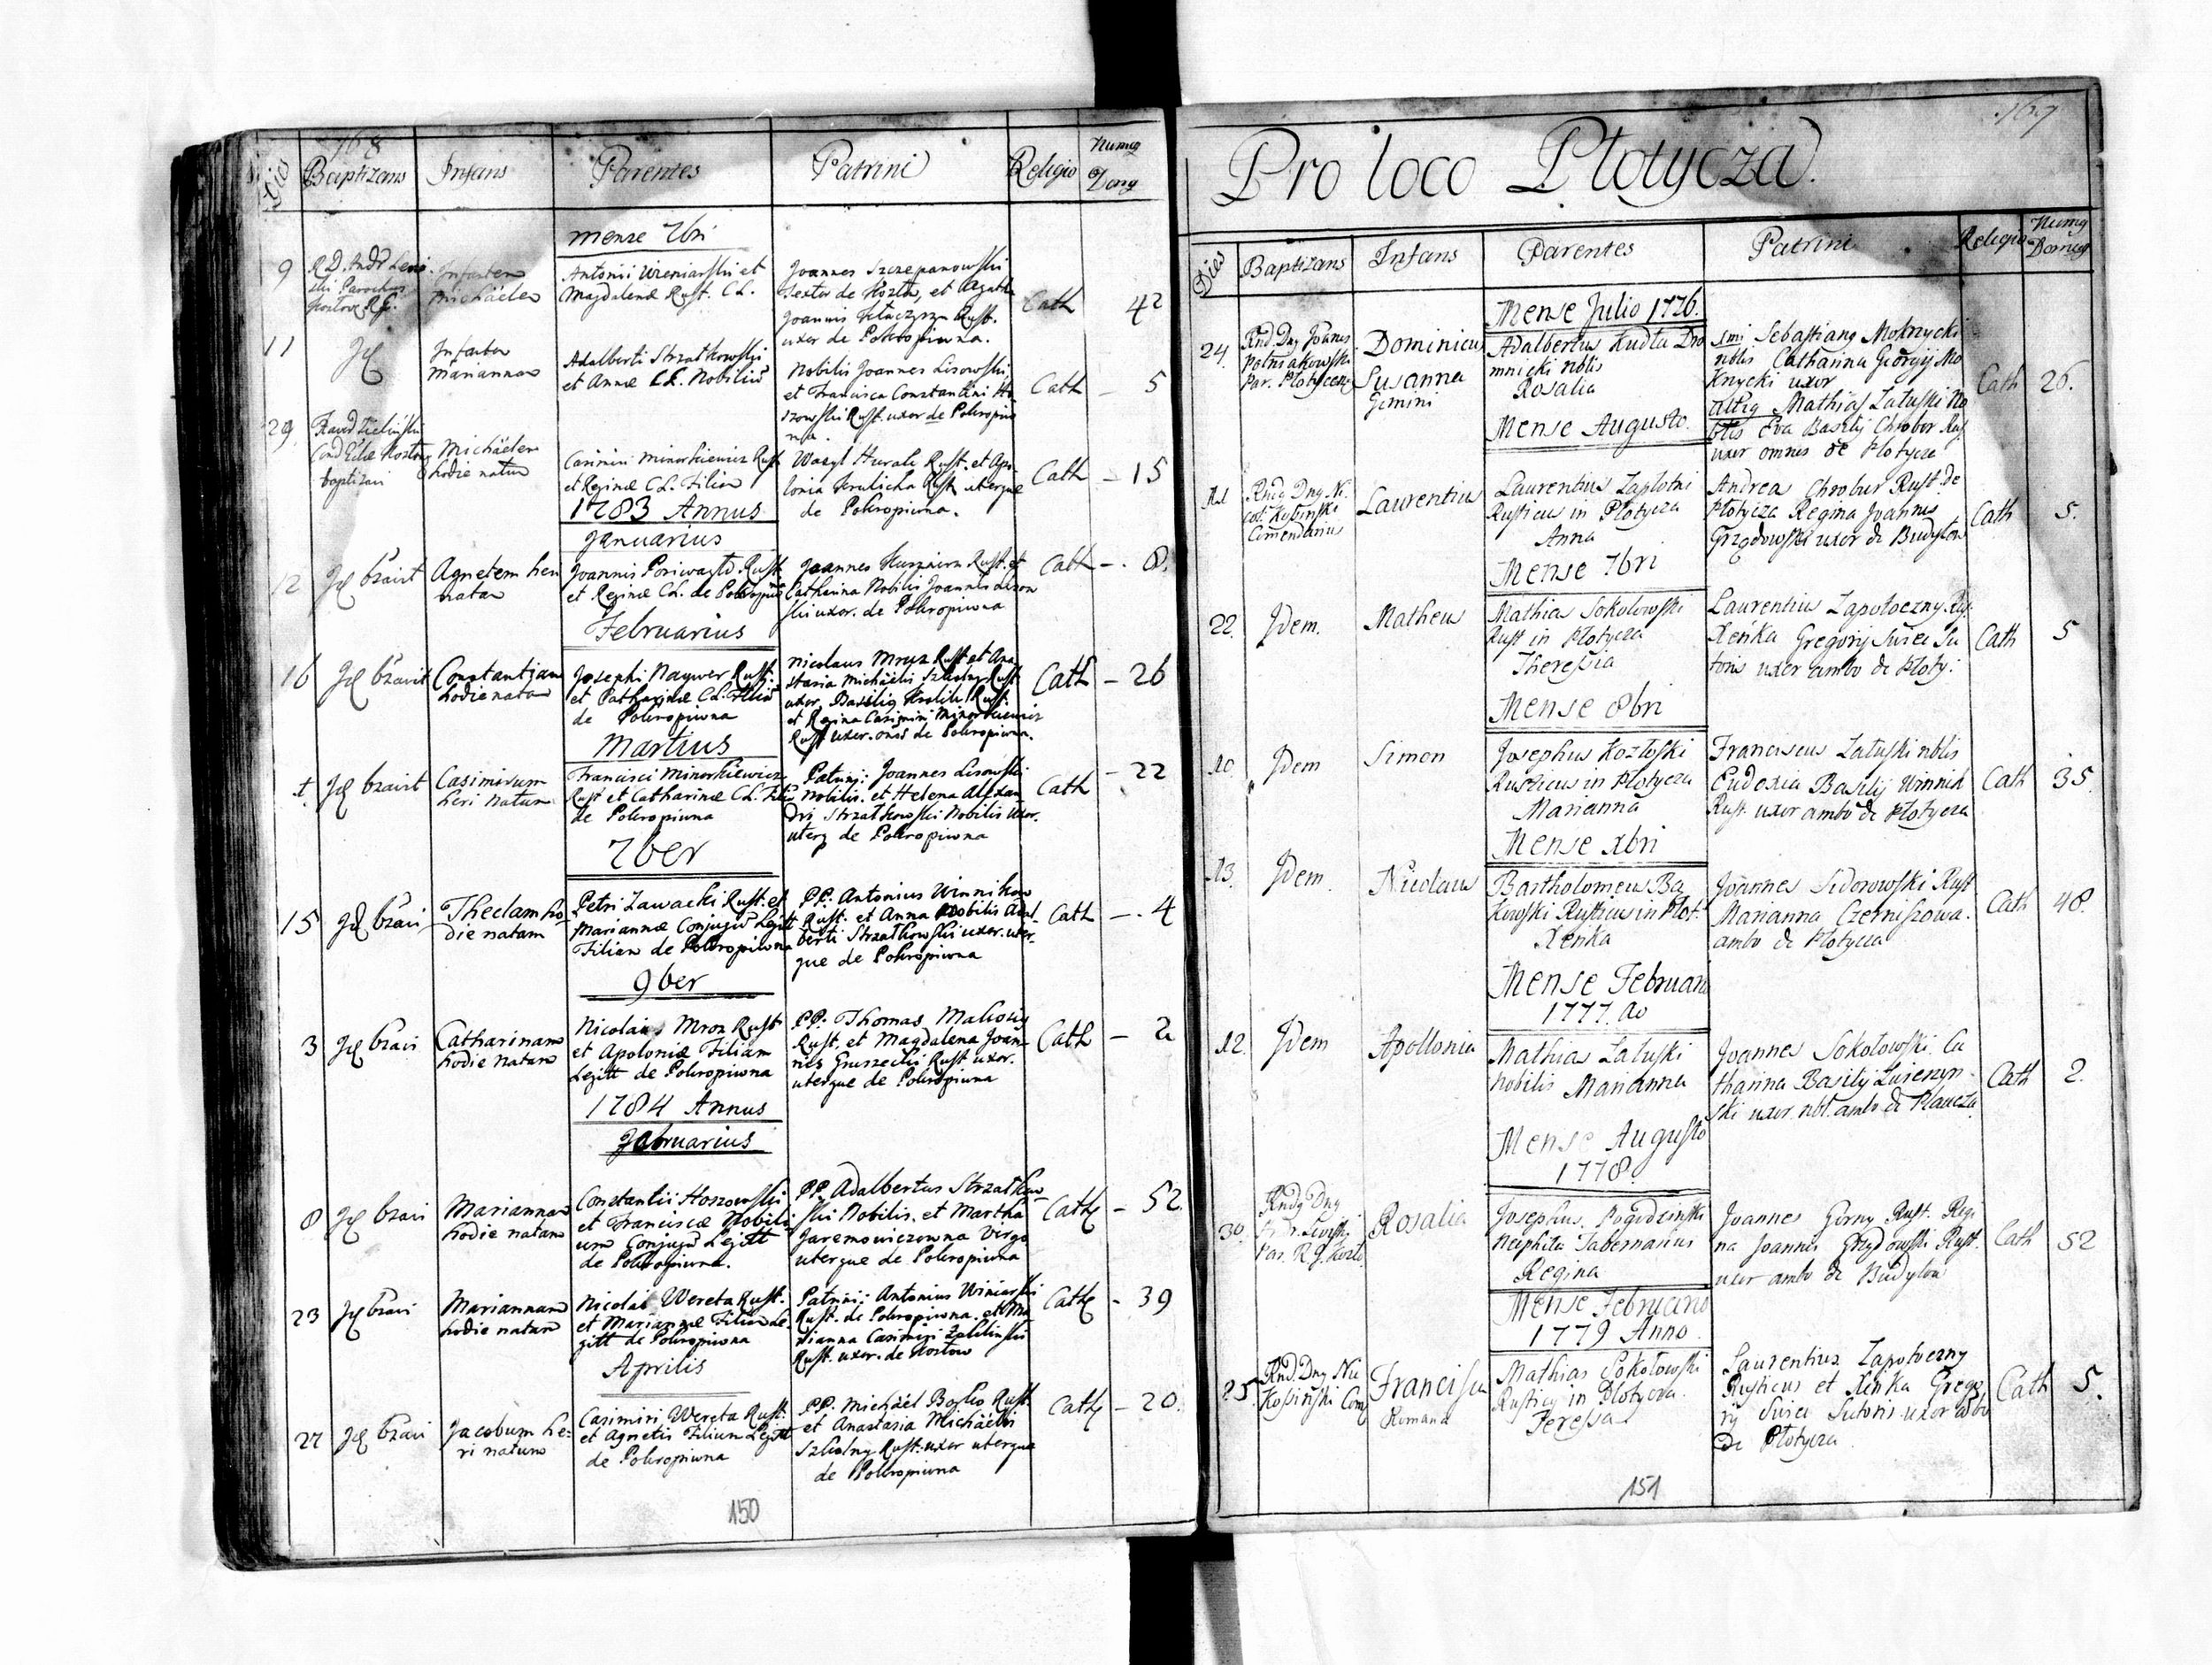 168
Dies Baptizans Infans Parentes Patrini Religio Numq Domq
Mense 7bri
9
Infantem
Michäelem
Antonii Winiarski et
Magdalenæ Rust. C.L.
Joannes Szczepanowski
de Kozlow, et Agatha
Joannis Rust.
uxor de Pokropiwna.
Cath 42
11
Id
Infantem
Mariannam
Adalberti Strzałkowski
et Annæ C.L. Nobiliū
Nobilis Joannes Lisowski
et Francisca Constantini Ho-
szowski Rust. uxor de Pokropiw
na.
Cath - 5
29
baptizavi
Michäelem
hodie natum
Casimiri Minorkiewicz Rust
et Reginæ C.L. Filium
Wasyl Hurale Rust. et Apo-
lonia Krulicha Rust. uterque
de Pokropiwna.
Cath - 15
1783 Annus
Januarius
12 Id bzavit
Agnetem heri
natam
Joannis Rust.
et Reginæ C.L. de Pokropiwna
Joannes Rust. et
Catharina Nobilis Joannis Lisow
ski uxor. de Pokropiwna
Cath - 8.
Februarius
16 Id bzavit
Constantiam
hodie natam
Josephi Naywer Rust.
et Catharinæ C.L. Filiā
de Pokropiwna
Nicolaus Mruz Rust et Ana
stasia Michäelis Szkolny Rust
uxor, Basiliq Krulik Rust
et Regina Casimiri Minorkiewicz
Rust. uxor. oēs de Pokropiwna.
Cath - 26
Martius
Id bzavit
Casimirum
heri natum
Francisci Minorkiewicz
Rust et Catharinæ C.L. Filiū
de Pokropiwna
Patrinj: Joannes Lisowski
Nobilis. et Helena Alexan
dri Strzałkowski Nobilis uxor.
uterq de Pokropiwna
Cath - 22
7ber
15 Id bzavi
Theclam ho-
die natam
Petri Zawacki Rust. et
Mariannæ Conjugū Legitt
Filiam de Pokropiwna
PP: Antonius Winnikow
Rust. et Anna Nobilis Adal-
berti Strzałkowski uxor. uter-
que de Pokropiwna
Cath - 4
9ber
3 Id bzavi
Catharinam
hodie natam
Nicolai Mroz Rust
et Apoloniæ Filiam
Legitt de Pokropiwna
PP: Thomas Makowy
Rust. et Magdalena Joan-
nis Gruszecki Rust. uxor.
uterque de Pokropiwna
Cath - 2
1784 Annus
Februarius
8 Id bzavi
Mariannam
hodie natam
Constantii Hoszowski
et Franciscæ Nobili-
um Conjugū Legitt
de Pokropiwna.
PP Adalbertus Strzałkow
ski Nobilis. et Martha
Jaremowiczowna Virgo
uterque de Pokropiwna
Cath - 52.
23 Id bzavi
Mariannam
hodie natam
Nicolai Wereta Rust.
et Mariannæ Filiam Le-
gitt de Pokropiwna
Patrini: Antonius Winiarski
Rust. de Pokropiwna. et Ma
rianna Casimiri
Rust. uxor. de Kozlow
Cath - 39
Aprilis
27 Id bzavi
Jacobum he-
ri natum
Casimiri Wereta Rust.
et Agnetis Filium Legitt
de Pokropiwna
PP. Michäel Bosko Rust
et Anastasia Michäelis
Szkolny Rust. uxor uterque
de Pokropiwna
Cath - 20.
150
167
Pro loco Płotycza.
Dies Baptizans Infans Parentes Patrini Religio Numq Domq
Mense Julio 1776.
24.
Rnd Dnq Joannes
Potniakowski
Par. Płotycens
Dominicus
Susanna
Gemini
Adalbertus Kudła Do
mnicki nblis
Rosalia
1mi Sebastianq Mokrzycki
nblis Catharina Georgij Mo
krzycki uxor
altrq Mathias Załuski No
blis Eva Basilij Chrobor Rus
uxor omnes de Płotycza
Cath 26.
Mense Augusto.
11
Rndq Dnq Ni
col. Kosinski
Comendarius
Laurentius
Laurentius Zapłotni
Rusticus in Płotycza
Anna
Andrea Chrobur Rust. de
Płotycza Regina Joannis
Grzędowski uxor de Budyłow
Cath 5.
Mense 7bri
22. Idem. Matheus
Mathias Sokołowski
Rust in Płotycza
Theressia
Laurentius Zapołoczny Rus.
Xeńka Gregorij Swiec Su
toris uxor ambo de Płoty:
Cath 5
Mense 8bri
10. Idem Simon
Josephus Kozłoski
Rusticus in Płotycza
Marianna
Franciscus Załuski nblis
Eudoxia Basilij Winnik
Rust. uxor ambo de Płotycza
Cath 35.
Mense Xbri
13. Idem. Nicolaus
Bartholomeus Ba
kowski Rusticus in Płot.
Xeńka
Joannes Sidorowski Rust
Marianna Czerniszowa.
ambo de Płotycza
Cath 48.
Mense Februari
1777. Ao
12. Idem Apollonia
Mathias Załuski
nobilis Marianna
Joannes Sokołowski Ca
tharina Basilij
ski uxor nbl. ambo de Płaucza
Cath 2.
Mense Augusto
1778.
30.
Rndq Dnq
Rosalia
Josephus Pogodzinski
Neophita Tabernarius
Regina
Joannes Gorny Rust. Regi
na Joannis Grzędowski Rust.
uxor ambo de Budyłow
Cath 52
Mense Februario
1779 Anno.
25.
Rnd Dnq Nic
Kosinski Com
Francisca
Romana
Mathias Sokołowski
Rusticq in Płotycza.
Teressa
Laurentius Zapołoczny
Rusticus et Xeńka Grego
rij Swiec Sutoris uxor ambo
de Płotycza.
Cath 5.
151